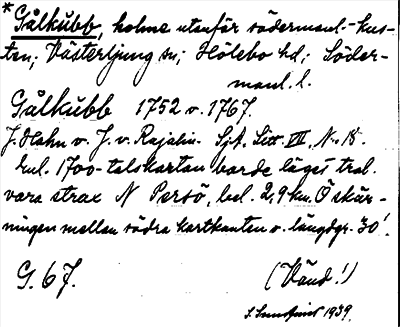 * Gålkubb, holme utanför södermanl.-kus-
ten; Västerljung sn; Hölebo hd; Söder-
manl. l.
Gålkubb 1752 o. 1767.
J. Hahn o. J. v. Rajalin. Sjk. Litt. VII, N. 18.
Enl. 1700-talskartan borde läget tral.
vara strax N Persö, bel. 2,9 km. Ö skär-
ningen mellan södra kartkanten o. längdgr. 30'.
G. 67. (Vänd!)
S. Sundqvist 1939.